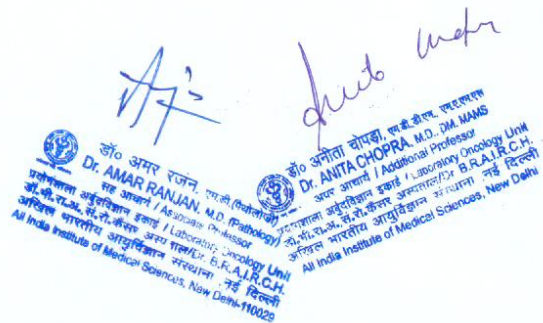 डॉ० अमर रंजन, एम.डी.(पैथोलॉजी)
Dr. AMAR RANJAN, M.D. (Pathology)
सह आचार्य / Associate Professor
प्रयोगशाला अर्बुदविज्ञान इकाई / Laboratory Oncology Unit
डॉ.भी.रा.अ.,सं.रो.कैंसर अस्पताल/Dr. B.R.A.I.R.C.H.
अखिल भारतीय आयुर्विज्ञान संस्थान, नई दिल्ली
All India Institute of Medical Sciences, New Delhi-110029
Anita
डॉ० अनीता चोपड़ा, एम.डी.,डी.एम.,
Dr. ANITA CHOPRA, M.D., DM, MAMS
अपर आचार्य / Additional Professor
प्रयोगशाला अर्बुदविज्ञान इकाई / Laboratory Oncology Unit
डॉ.भी.रा.अ.,सं.रो.कैंसर अस्पताल/Dr B.R.A.I.R.C.H.
अखिल भारतीय आयुर्विज्ञान संस्थान, नई दिल्ली
All India Institute of Medical Sciences, New Delhi